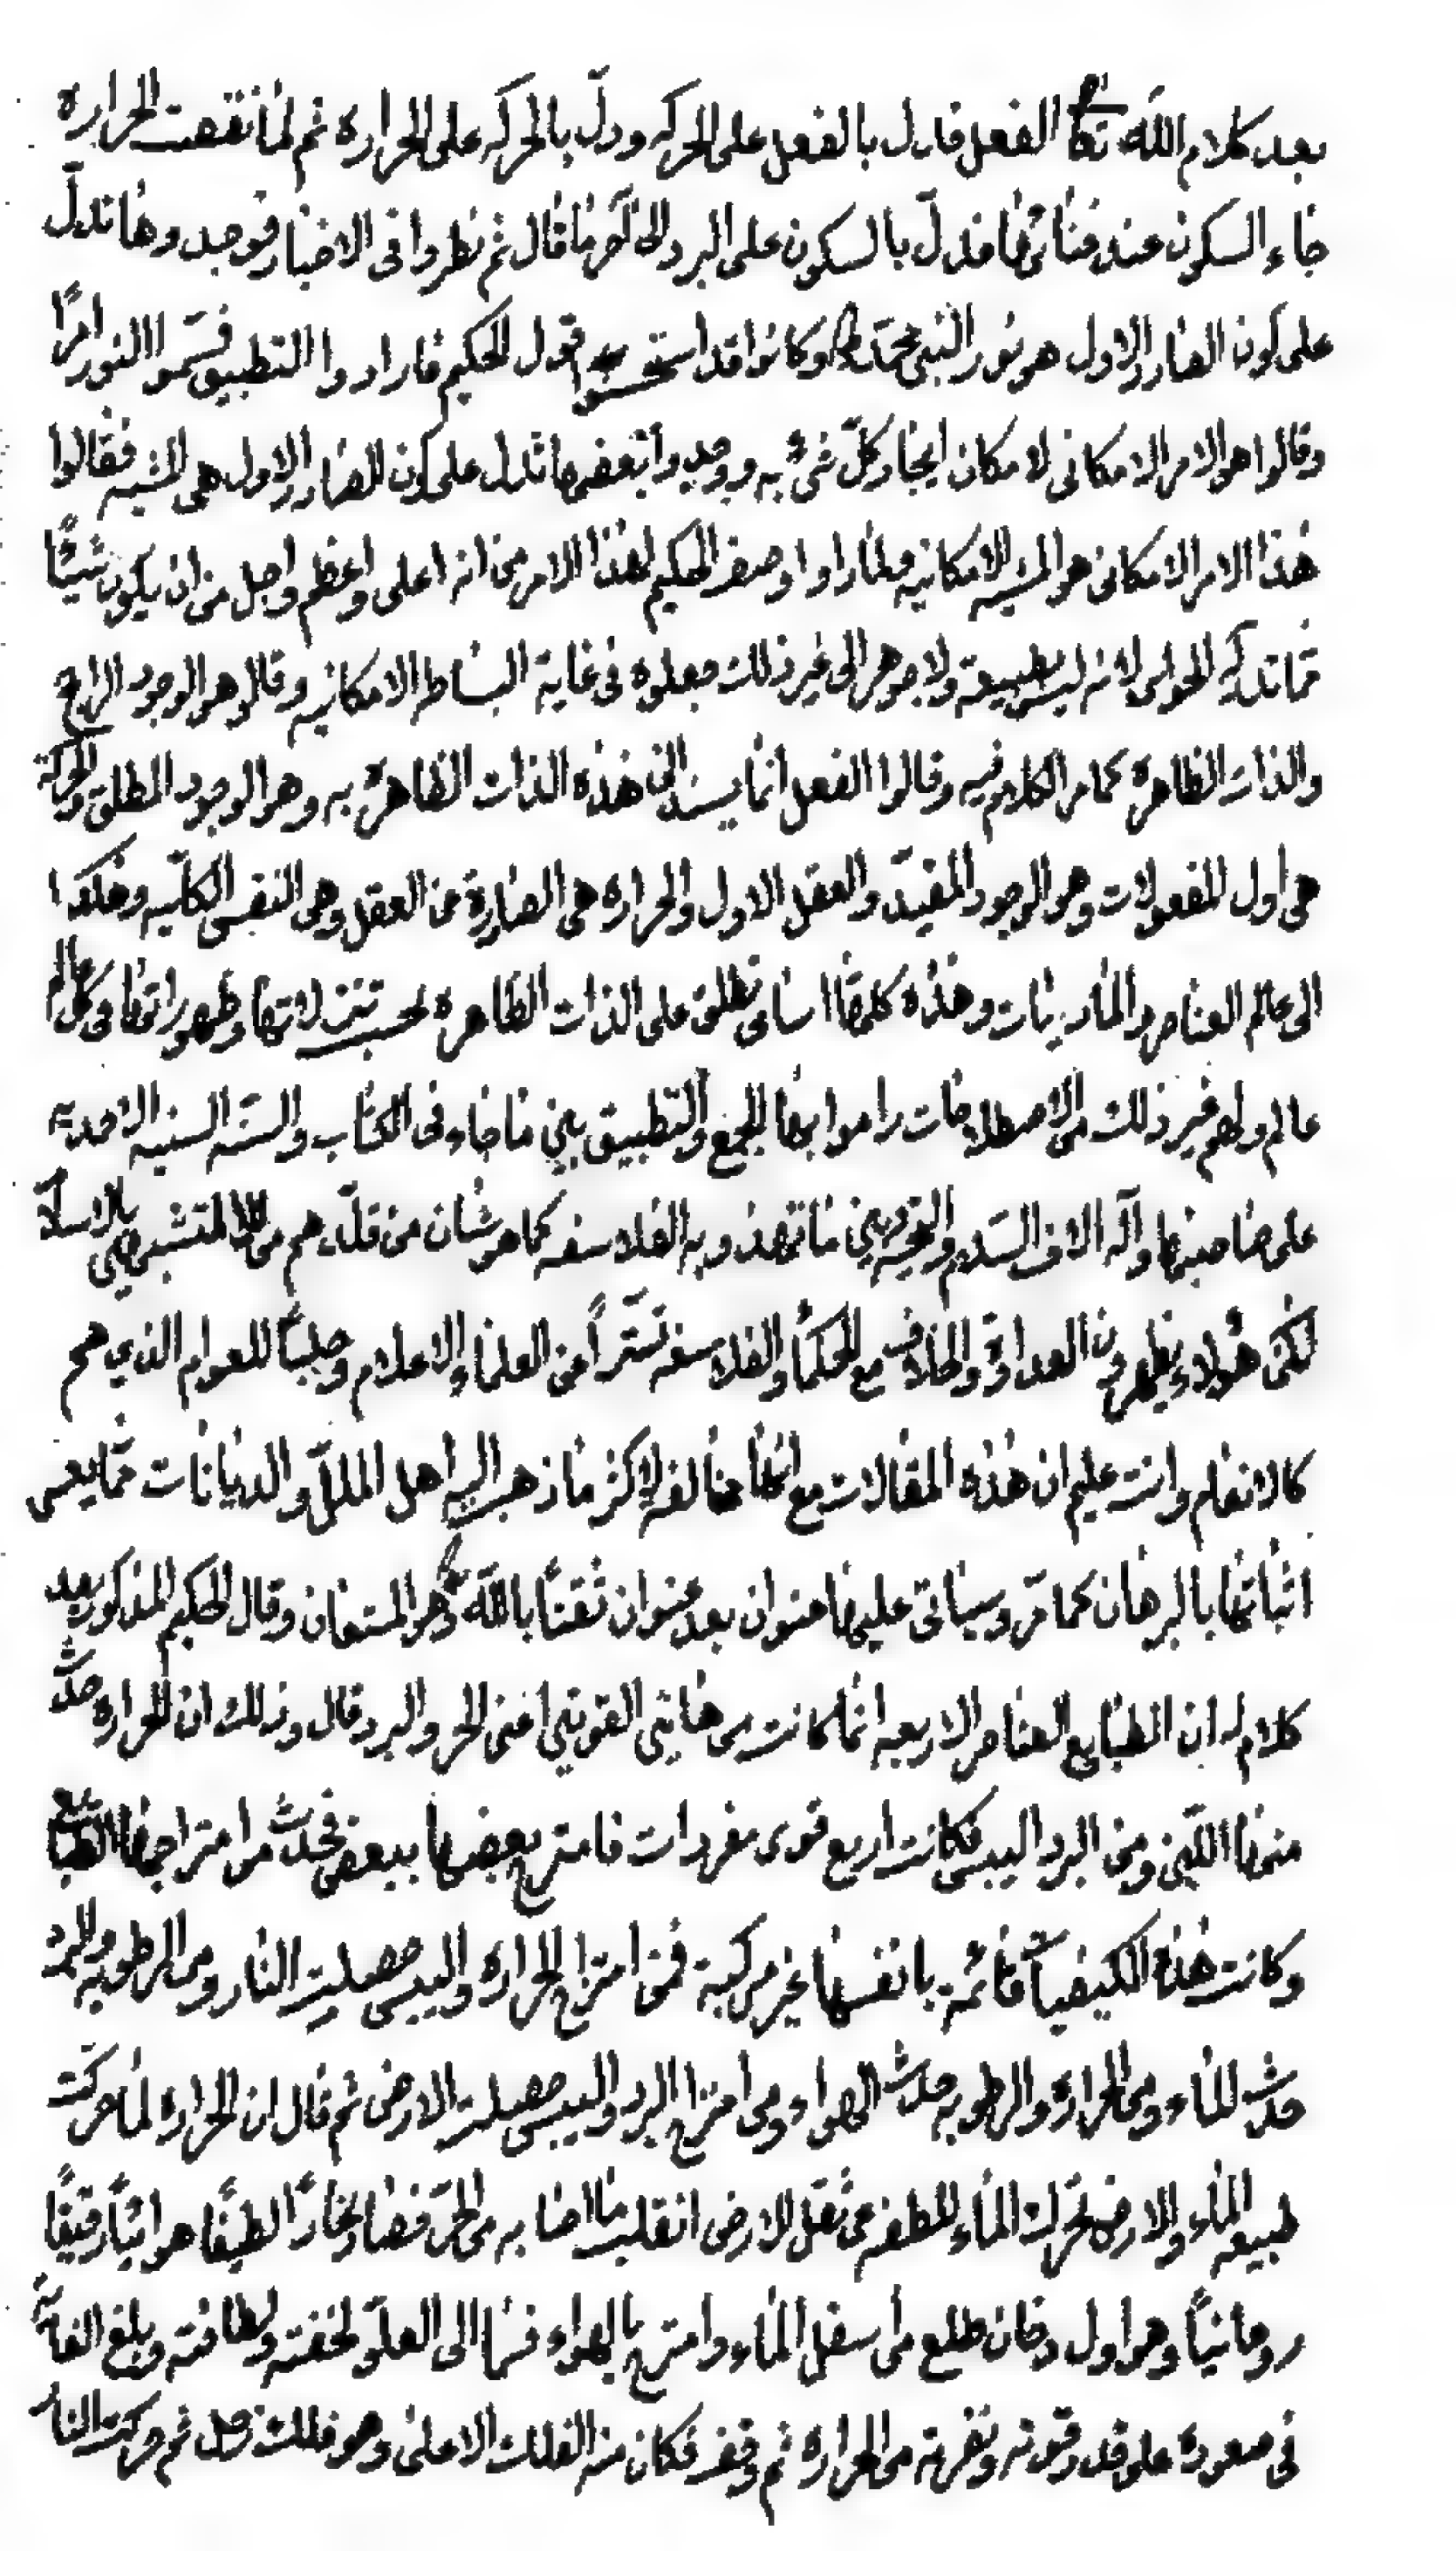 بعد كلام الله تعا الفعل فادل بالفعل على الحركه ودلّ بالحركه على الحراره ثم لما نقصت الحراره
جاء السكون عند فنائها فدلّ بالسكون على البرد الى آخر ما قال ثم نظروا فى الاخبار فوجدوها تدلّ
على كون الصادر الاول هو نور النبى محمد ص وكانوا قد استحسنوا قول الحكيم فارادوا التطبيق فسمّوا النور امرًا
وقالوا هو الامر الامكانى لامكان ايجاد كلّ شئ به ووجدوا بعضها تدل على كون الصادر الاول هى المشيه فقالوا
هذا الامر الامكانى هو المشيه الامكانيه ولما راوا وصف الحكيم لهذا الامر من انه اعلى واعظم واجل من ان يكون شيئًا
مما تدركه الحواس لانه ليس بطبيعة ولا جوهر الى غير ذلك جعلوه فى غاية البساطه الامكانيه وقالوا هو الوجود الراجح
والذات الظاهرة كما مر الكلام فيه وقالوا الفعل انما يسند الى هذه الذات الظاهرة به وهو الوجود المطلق والحركة
هى اول المفعولات وهو الوجود المقيدّ والعقل الاول والحراره هى الصادرة من العقل وهى النفس الكلّيه وهكذا
الى عالم العناصر والماديات وهذه كلها اسامى تطلق على الذات الظاهره بحسب تنزلاتها وظهوراتها فى كل عالم
عالم ولهم غير ذلك من الاصطلاحات راموا بها الجمع والتطبيق بين ما جاء فى الكتاب والسنّه السنيه الاحمديه
على صاحبها وآله الاف السلام والتحيه وبين ما تفوه به الفلاسفه كما هو شان من قلّدهم من المتشبهين بالاسلام
لكن هؤلاء يظهرون العداوة والخلاف مع الحكماء والفلاسفه تستّراً من العلماء الاعلام وجلباً للعوام الذين هم
كالانعام وانت عليم ان هذه المقالات مع انها مخالفه لاكثر ما ذهب اليه اهل الملل والديانات مما يعسر
اثباتها بالبرهان كما مرّ وسياتى عليها عنوان بعد عنوان ثقتًا بالله وهو المستعان وقال الحكيم المذكور بعد
كلام له ان الطبايع العناصر الاربعه انما كانت من هاتين القوتين اعنى الحر والبرد قال وذلك ان الحراره حدث
منها اللين ومن البرد اليبس فكانت اربع قوى مفردات فامتزج بعضها ببعض فحدث من امتزاجها الطبايع
وكانت هذه الكيفيات قائمة بانفسها غير مركبة فمن امتزاج الحراره واليبس حصلت النار ومن الرطوبه والبرد
حدث الماء ومن الحرارة والرطوبه حدث الهواء ومن امتزاج البرد واليبس حصلت الارض ثم قال ان الحراره لما حركت
طبيعه الماء والارض تحرك الماء للطفه عن ثقل الارض انقلب ما اصابه من الحرّ فصار بخارًا لطيفًا هوائيًا رقيقًا
روحانيًا وهو اول دخان طلع من اسفل الماء وامتزج بالهواء فسما الى العلوّ لخفته ولطافته وبلغ الغاية
فى صعوده على قدر قوته ونفرته من الحراره ثم وقف فكان منه الفلك الاعلى وهو فلك زحل ثم حركت النار